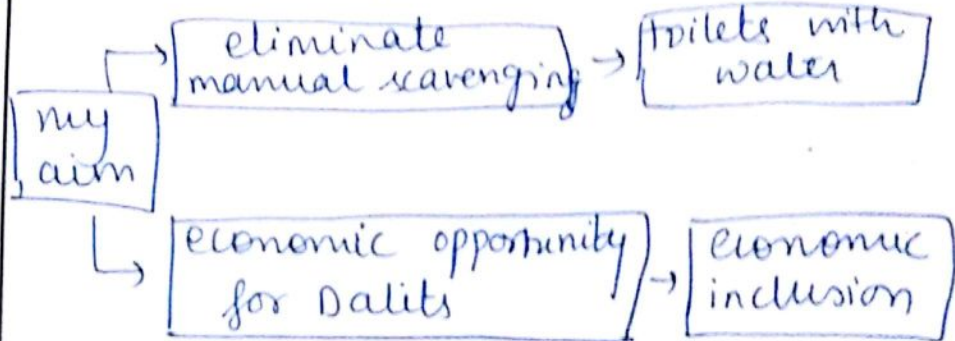 eliminate
manual scavenging
toilets with
water
my
aim
economic opportunity
for Dalits
economic
inclusion